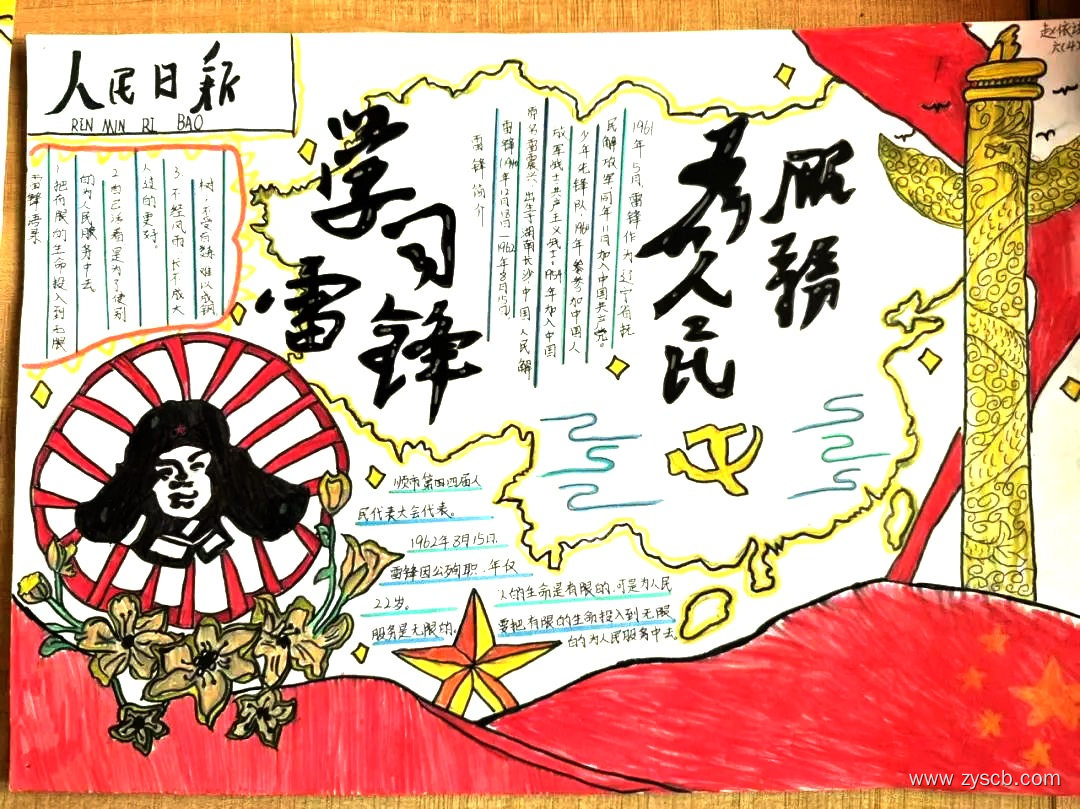 人民日新
REN MIN RI BAO
学习
雷锋
为人民
服務
雷锋简介
雷锋(1940年12月18日—1962年8月15日)
原名雷震兴,出生于湖南长沙,中国人民解
放军战士,共产主义战士,1954年加入中国
少年先锋队,1960年参加中国人
民解放军同年11月加入中国共产党。
1961年5月,雷锋作为辽宁省抚
顺市第四届人
民代表大会代表。
1962年8月15日,
雷锋因公殉职,年仅
22岁。
人的生命是有限的,可是为人民
服务是无限的,
要把有限的生命投入到无限
的为人民服务中去
雷锋语录
1.把有限的生命投入到无限
的为人民服务中去
2.自己活着是为了使别
人过的更好。
3.不经风雨,长不成大
树;不受百炼,难以成钢
www.zyscb.com